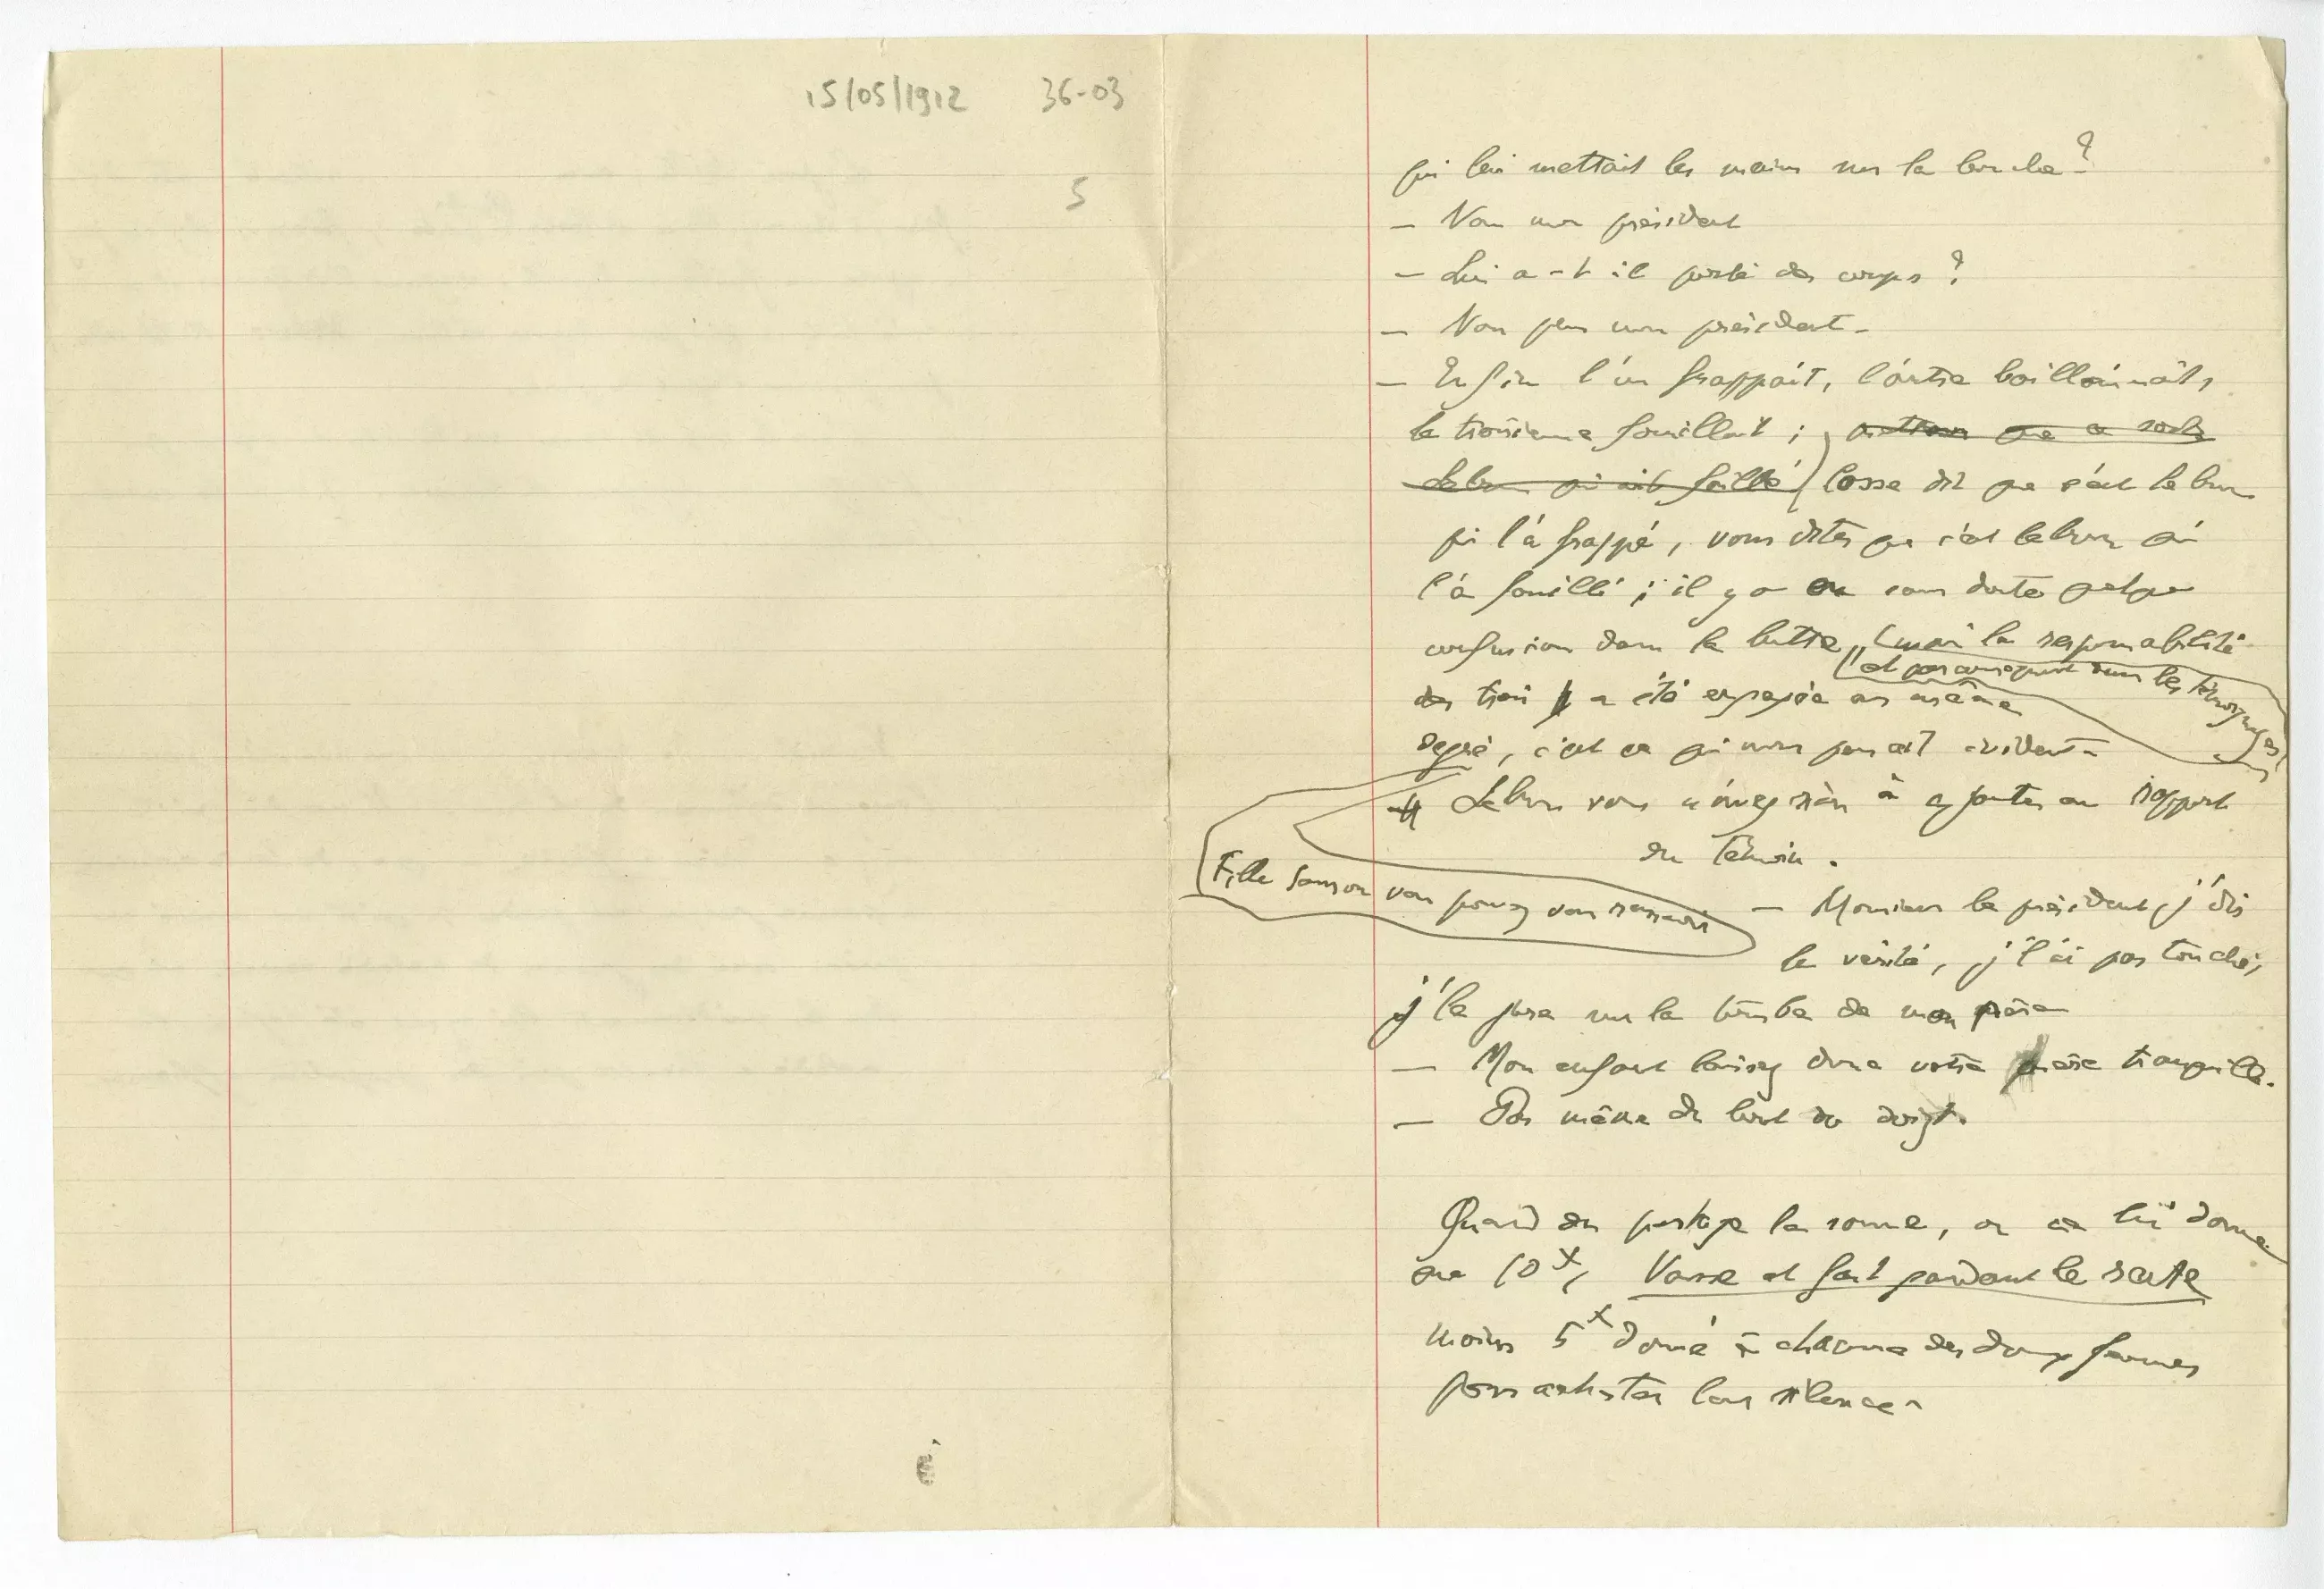 15/05/1912 36-03
5
qui lui mettait les mains sur la bouche ?
— Non mon président
— Lui a-t il porté des coups ?
— Non plus mon président -
— Enfin l'un frappait, l'autre baillonnait,
le troisième fouillait ; mettons que ce soit
Lebrun qui ait fouillé Cosse dit que c'est Lebrun
qui l'a frappé, vous dites que c'est Lebrun qui
l'a fouillé ; il y a eu sans doute quelque
confusion dans la lutte, mais la responsabilité
et par conséquent dans les témoignages
des trois a été engagée au même
degré, c'est ce qui nous parait évident -
Lebrun vous n'avez rien à ajouter au rapport
du témoin .
Fille Samson vous pouvez vous rasseoir
— Monsieur le président, j'dis
la vérité, j'l'ai pas touché,
j'le jure sur la tombe de mon père
— Mon enfant laissez donc votre père tranquille.
— Pas même du bout du doigt.
Quand on partage la somme, on ne lui donne
que 10 f, Vasse et fait pendant le reste
moins 5 f donné à chacune des deux femmes
pour acheter leur silence -